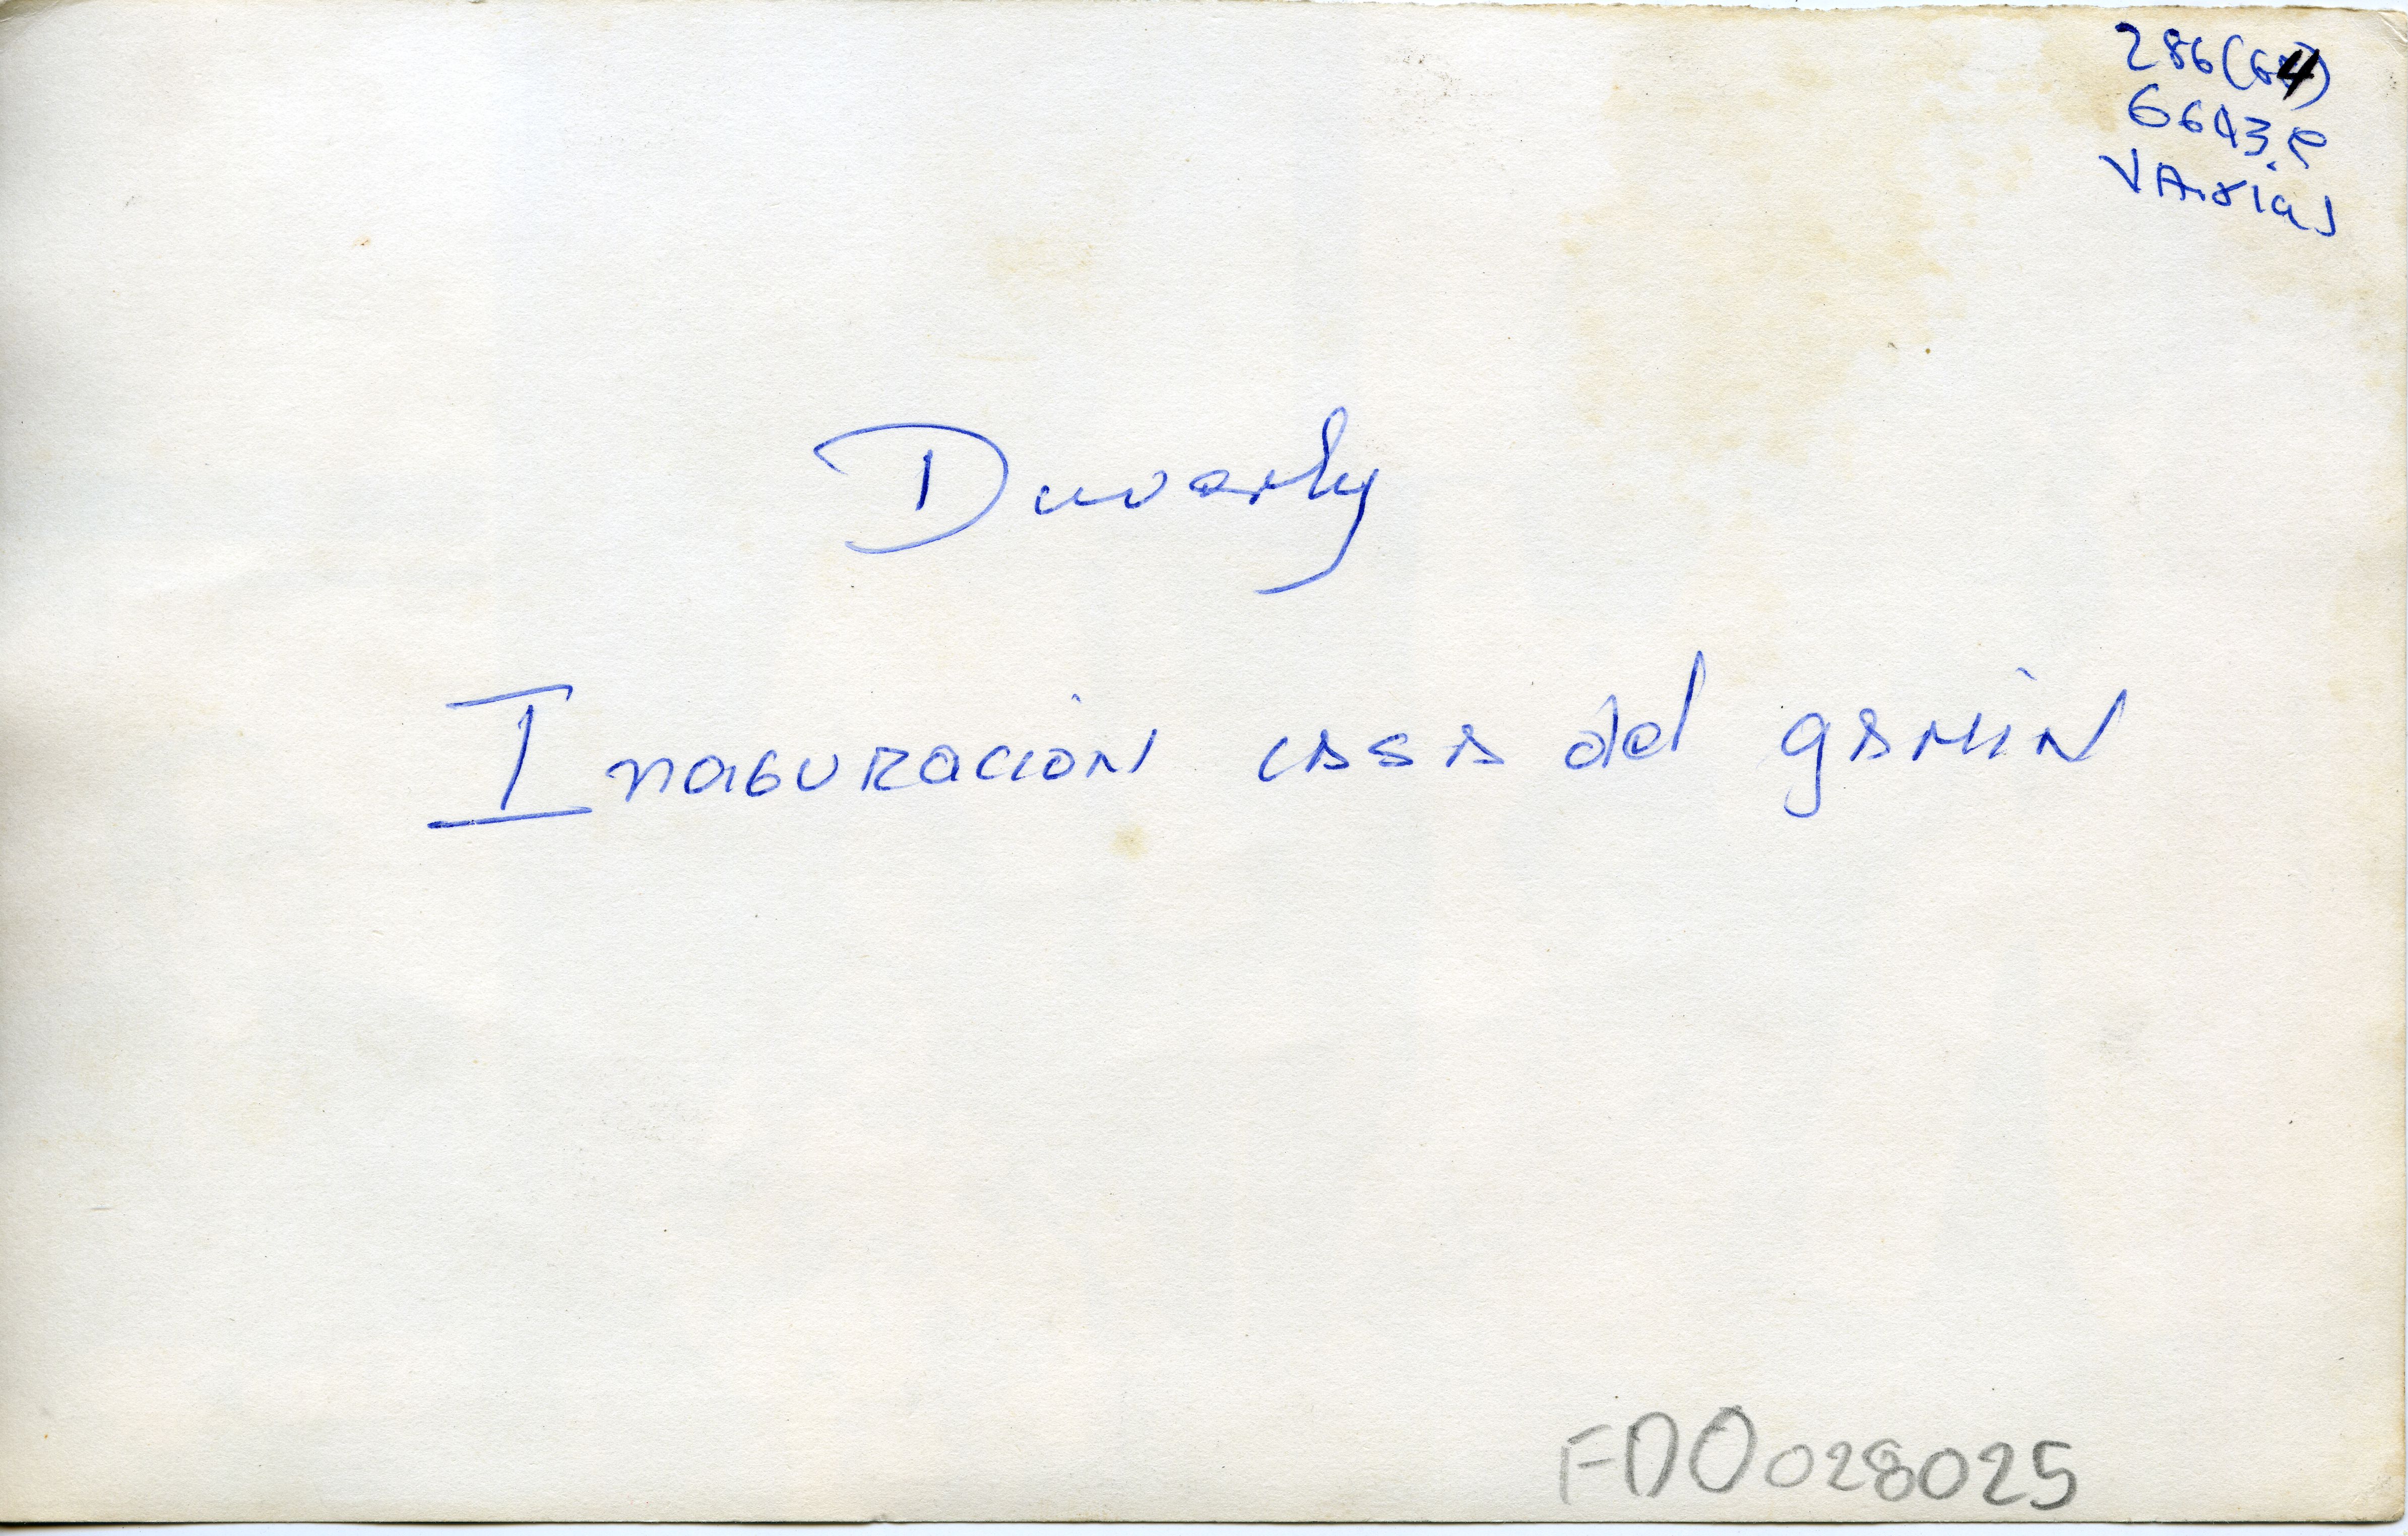 286(64)
6643.e
VArias
Duvarly
Inaguración casa del gamin
FDO028025